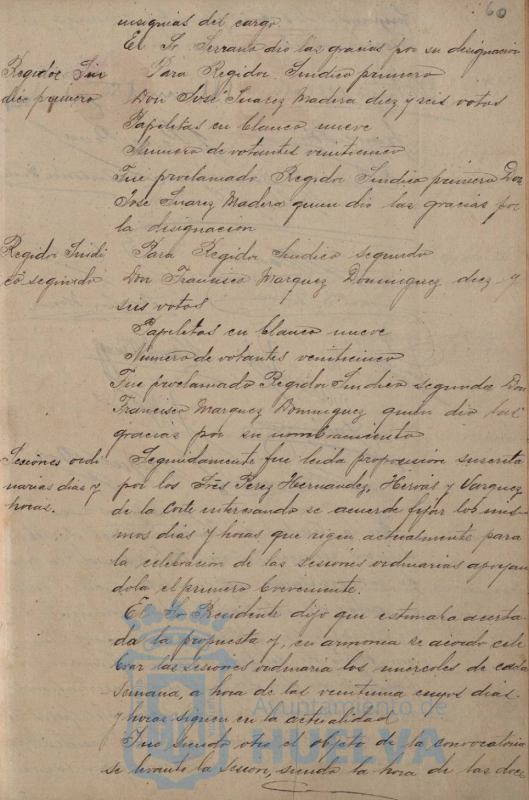 60
insignias del cargo
El Sr Serrano dio las gracias por su designacion
Regidor Sin
dico primero
Para Regidor Sindico primero
Don José Suarez Madera diez y seis votos
Papeletas en blanco nueve
Numero de votantes veinticinco
Fue proclamado Regidor Sindico primero Don
José Suarez Madera quien dio las gracias por
la designacion
Regidor Sindi
co segundo
Para Regidor Sindico segundo
Don Francisco Marquez Dominguez diez y
seis votos
Papeletas en blanco nueve
Número de votantes veinticinco
Fue proclamado Regidor Sindico segundo Don
Francisco Marquez Dominguez quien dio las
gracias por su nombramiento
Sesiones ordi
narias dias y
horas.
Seguidamente fue leida proposicion suscrita
por los Sres Perez Hernandez, Hervás y Vazquez
de la Corte interesando se acuerde fijar los mis-
mos dias y horas que rigen actualmente para
la celebracion de las sesiones ordinarias apoyan
dola el primero brevemente.
El Sr Presidente dijo que estimaba acerta-
da la propuesta y, en armonia se acordo cele
brar las sesiones ordinaria los miercoles de cada
semana, a hora de las veintiuna cuyos dias
y horas siguen en la actualidad
Ayuntamiento de
HUELVA
Fue siendo otro el objeto de la convocatoria
se levanto la sesion, siendo la hora de las doce